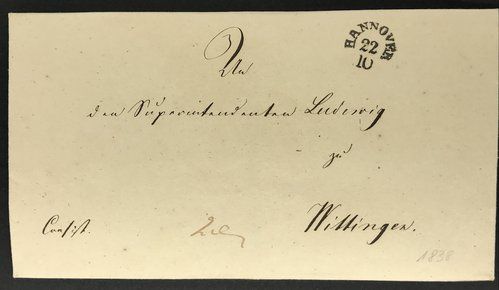 HANNOVER
22
10
An
den Superintendenten Ludewig
zu
Wittingen.
Consist.
1838